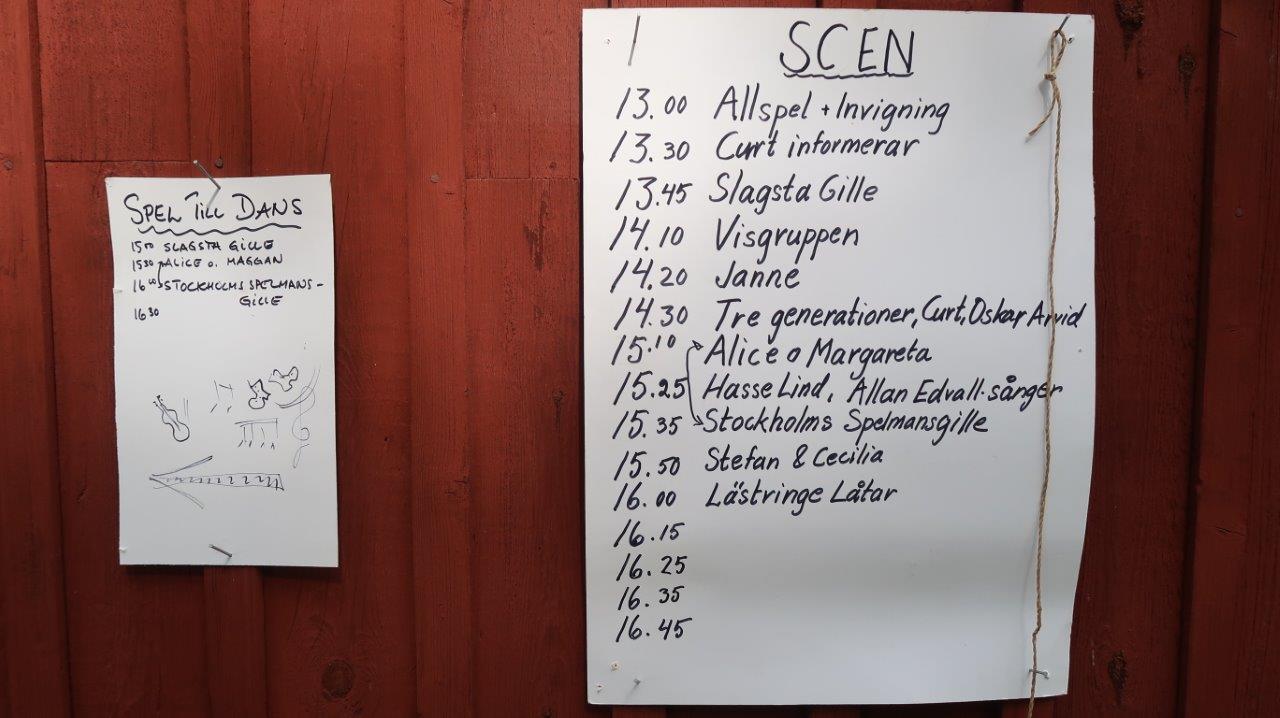 SPEL TILL DANS
15⁰⁰ SLAGSTA GILLE
15³⁰ ALICE o. MAGGAN
16⁰⁰ STOCKHOLMS SPELMANS-
GILLE
16³⁰
SCEN
13.00 Allspel + Invigning
13.30 Curt informerar
13.45 Slagsta Gille
14.10 Visgruppen
14.20 Janne
14.30 Tre generationer, Curt, Oskar Arvid
15.10 Alice o Margareta
15.25 Hasse Lind, Allan Edvall-sånger
15.35 Stockholms Spelmansgille
15.50 Stefan & Cecilia
16.00 Lästringe Låtar
16.15
16.25
16.35
16.45